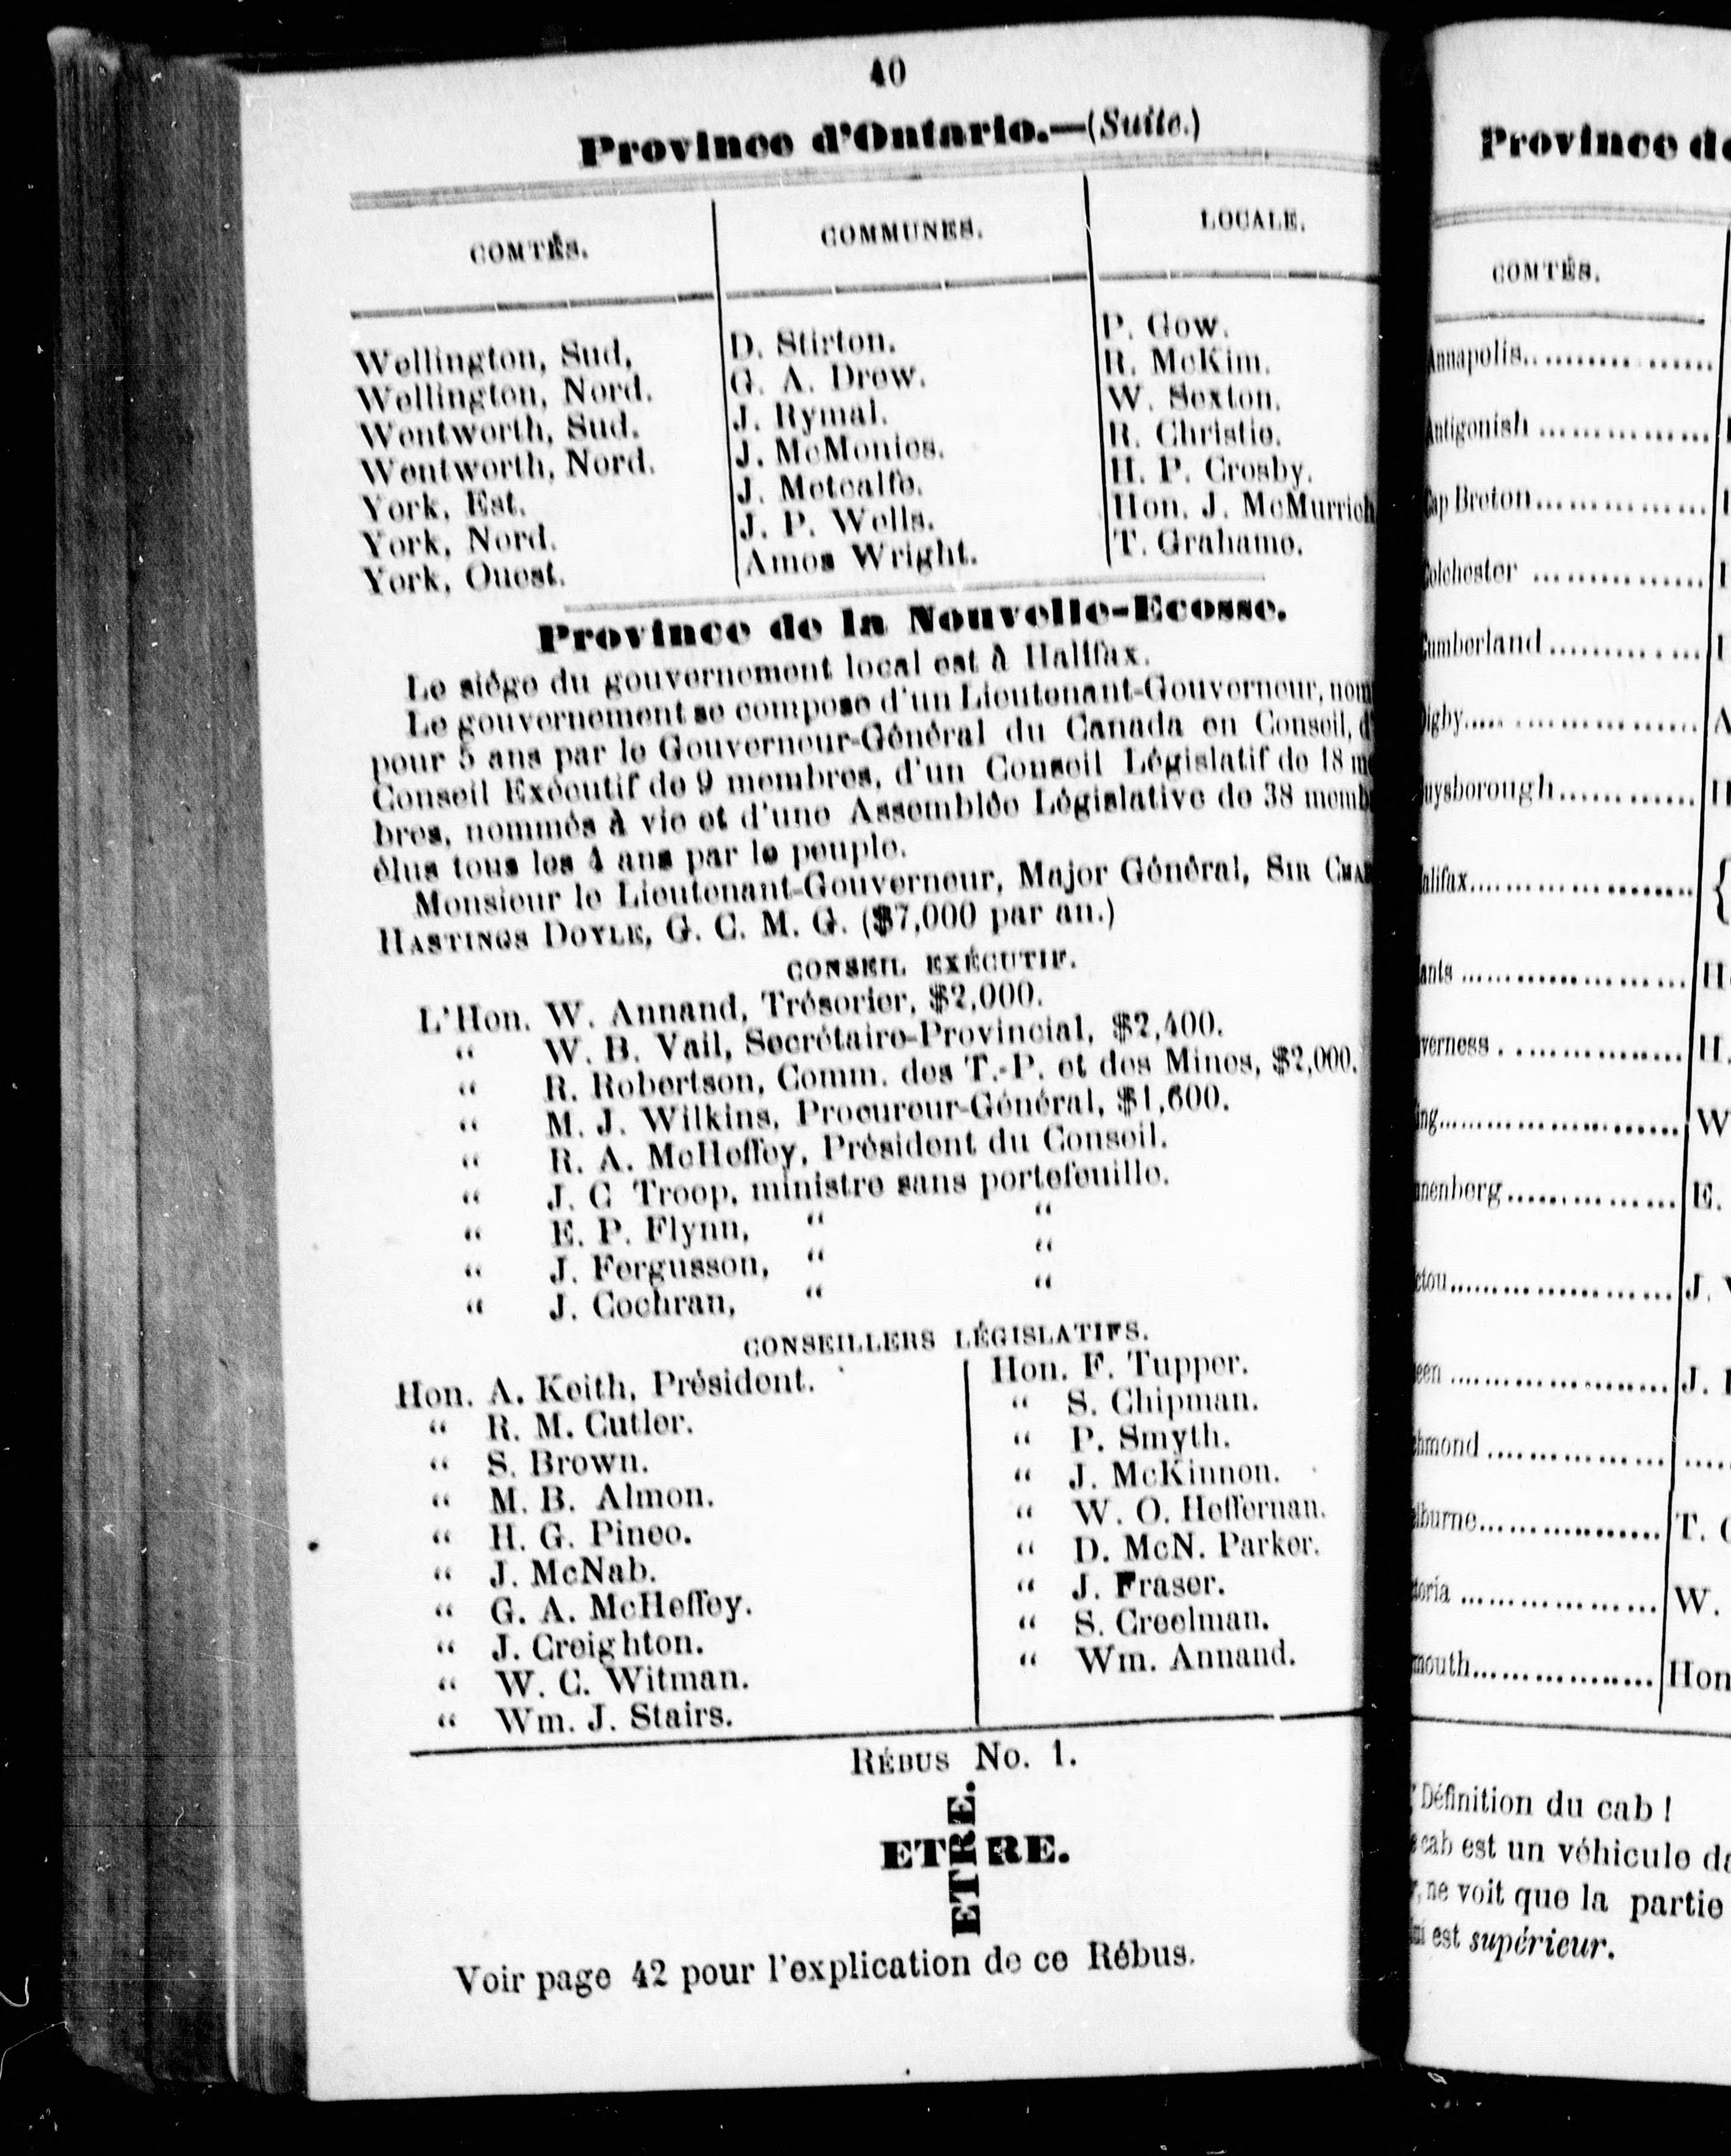 40
Province d'Ontario.—(Suite.)
COMTÉS. COMMUNES. LOCALE.
Wellington, Sud. D. Stirton. P. Gow.
Wellington, Nord. G. A. Drew. R. McKim.
Wentworth, Sud. J. Rymal. W. Sexton.
Wentworth, Nord. J. McMonies. R. Christie.
York, Est. J. Metcalfe. H. P. Crosby.
York, Nord. J. P. Wells. Hon. J. McMurrich
York, Ouest. Amos Wright. T. Grahame.
Province de la Nouvelle-Ecosse.
Le siége du gouvernement local est à Halifax.
Le gouvernement se compose d'un Lieutenant-Gouverneur, nom
pour 5 ans par le Gouverneur-Général du Canada en Conseil, d'
Conseil Exécutif de 9 membres, d'un Conseil Législatif de 18 me
bres, nommés à vie et d'une Assemblée Législative de 38 memb
élus tous les 4 ans par le peuple.
Monsieur le Lieutenant-Gouverneur, Major Général, SIR CHAR
HASTINGS DOYLE, G. C. M. G. ($7,000 par an.)
CONSEIL EXÉCUTIF.
L'Hon. W. Annand, Trésorier, $2,000.
" W. B. Vail, Secrétaire-Provincial, $2,400.
" R. Robertson, Comm. des T.-P. et des Mines, $2,000.
" M. J. Wilkins, Procureur-Général, $1,600.
" R. A. McHeffey, Président du Conseil.
" J. C Troop, ministre sans portefeuille.
" E. P. Flynn, " "
" J. Fergusson, " "
" J. Cochran, " "
CONSEILLERS LÉGISLATIFS.
Hon. A. Keith, Président.
" R. M. Cutler.
" S. Brown.
" M. B. Almon.
" H. G. Pineo.
" J. McNab.
" G. A. McHeffey.
" J. Creighton.
" W. C. Witman.
" Wm. J. Stairs.
Hon. F. Tupper.
" S. Chipman.
" P. Smyth.
" J. McKinnon.
" W. O. Heffernan.
" D. McN. Parker.
" J. Fraser.
" S. Creelman.
" Wm. Annand.
RÉBUS No. 1.
ETRE.
ETRE.
Voir page 42 pour l'explication de ce Rébus.
Province de
COMTÉS.
Annapolis
Antigonish
Cap Breton
Colchester
Cumberland
Digby A
uysborough H
alifax {
ants H
verness H.
ing W
nenberg E.
ctou J.
een J.
hmond
lburne T.
toria W.
mouth Hon
Définition du cab !
cab est un véhicule da
ne voit que la partie
est supérieur.